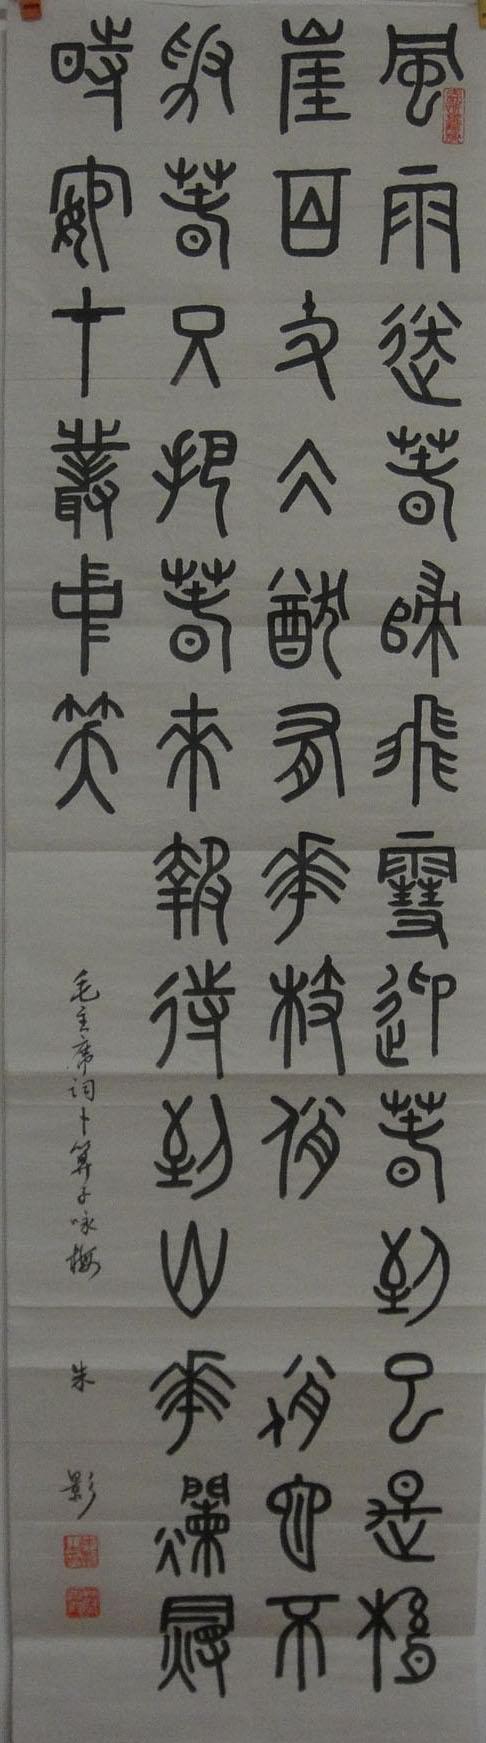 風雨送春歸飛雪迎春到已是懸
崖百丈冰猶有花枝俏 俏也不
爭春只把春來報待到山花爛漫
時她在叢中笑
毛主席詞卜算子咏梅 朱影